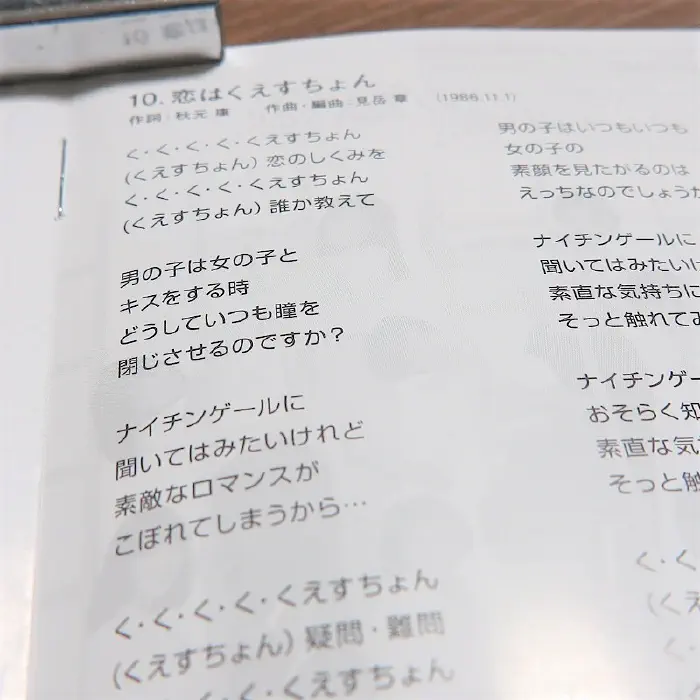 10. 恋はくえすちょん
作詞:秋元 康 作曲・編曲:見岳 章 (1986.11.1)
く・く・く・く・くえすちょん
(くえすちょん) 恋のしくみを
く・く・く・く・くえすちょん
(くえすちょん) 誰か教えて
男の子は女の子と
キスをする時
どうしていつも瞳を
閉じさせるのですか?
ナイチンゲールに
聞いてはみたいけれど
素敵なロマンスが
こぼれてしまうから…
く・く・く・く・くえすちょん
(くえすちょん) 疑問・難問
く・く・く・くえすちょん
男の子はいつもいつも
女の子の
素顔を見たがるのは
えっちなのでしょうか
ナイチンゲールに
聞いてはみたいけ
素直な気持ちに
そっと触れてみ
ナイチンゲー
おそらく知
素直な気
そっと触
く・く
(くえ